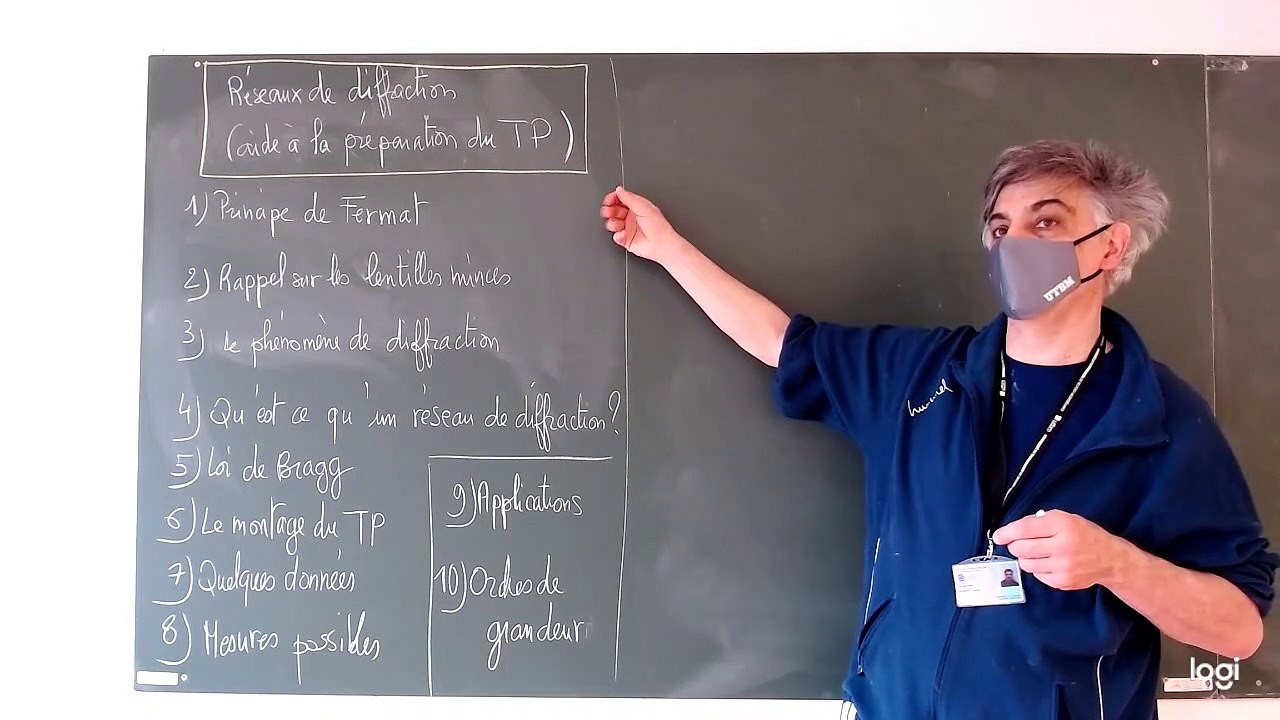 Réseaux de diffraction
(aide à la préparation du TP)
1) Principe de Fermat
2) Rappel sur les lentilles minces
3) Le phénomène de diffraction
4) Qu'est ce qu'un réseau de diffraction ?
5) Loi de Bragg
6) Le montage du TP
7) Quelques données
8) Mesures possibles
9) Applications
10) Ordres de
grandeur
UTBM
logi